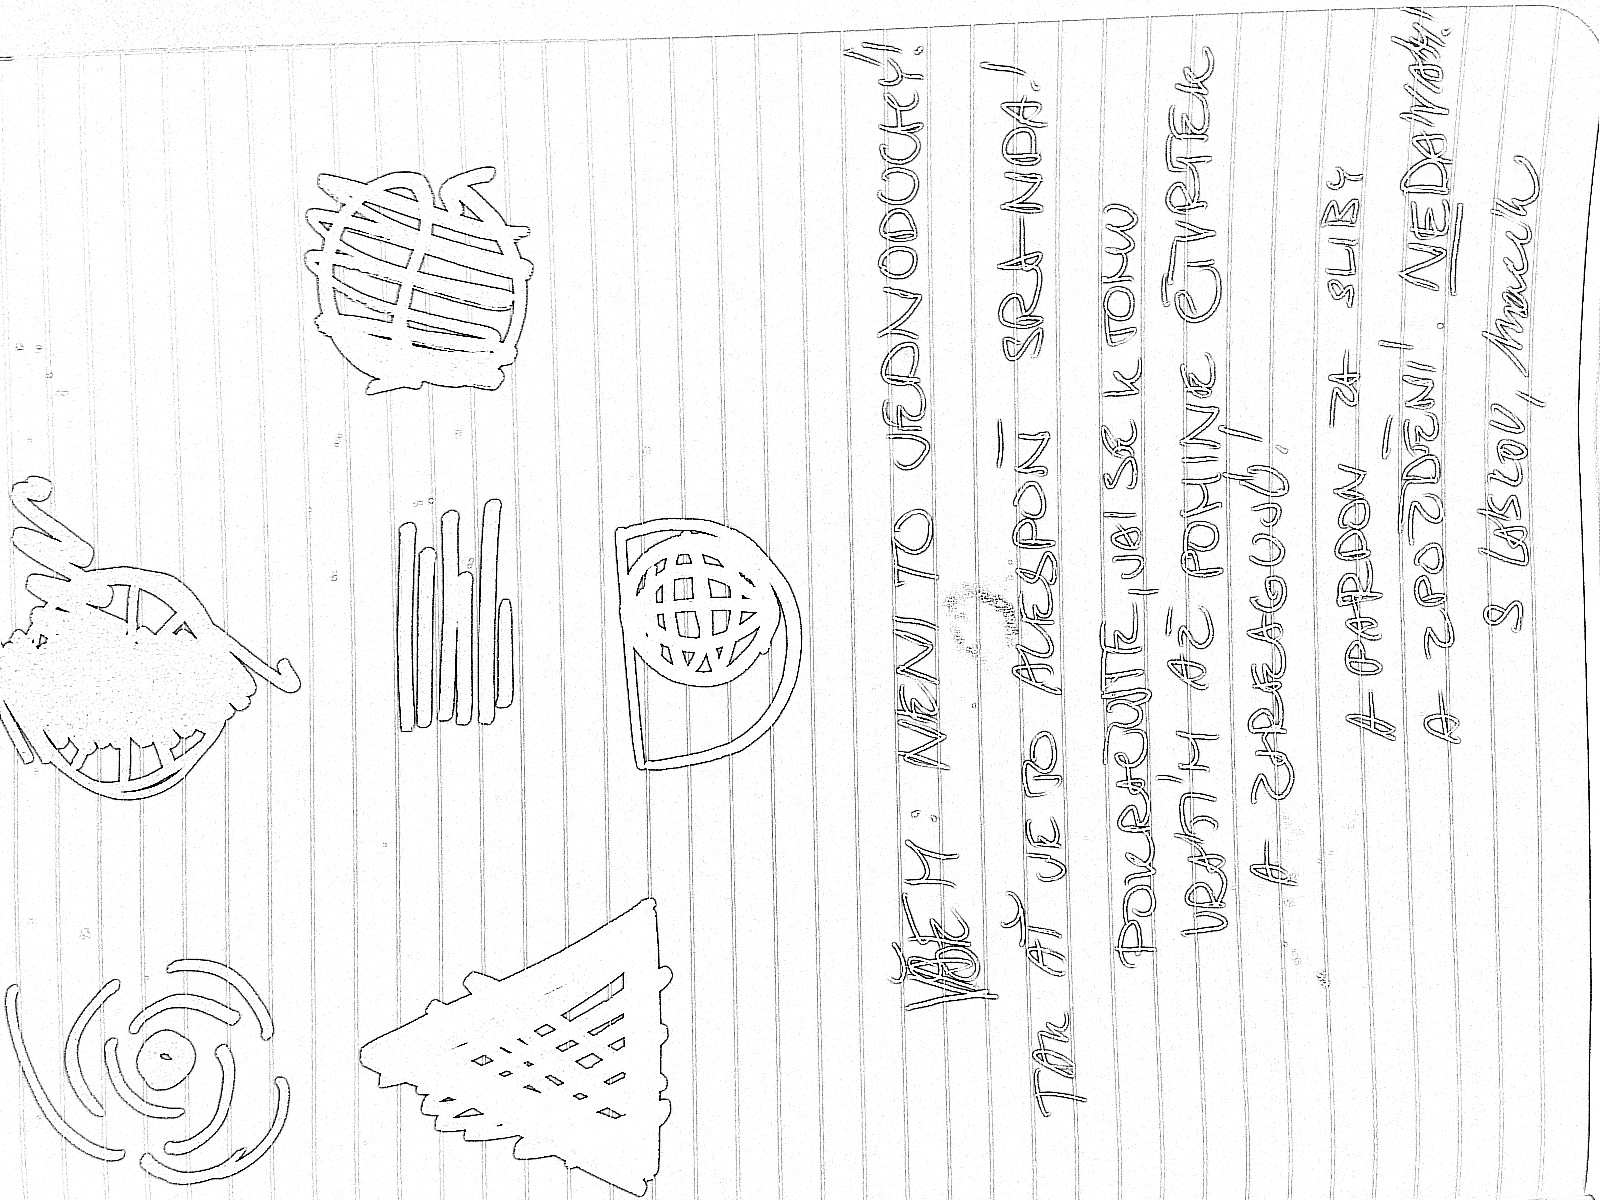 M: NENI TO JEDNODUCHÝ!
TAK AŤ JE TO ALESPOŇ SRANDA!
POKRAČUJTE, JÁ SE K TOMU
VRÁTÍM AŽ POMINE ČTVRTEK
A ZAREAGUJU!
A PARDON ZA SLIBY
A ZPOŽDĚNÍ. NEDÁVÁM!
S LÁSKOU,